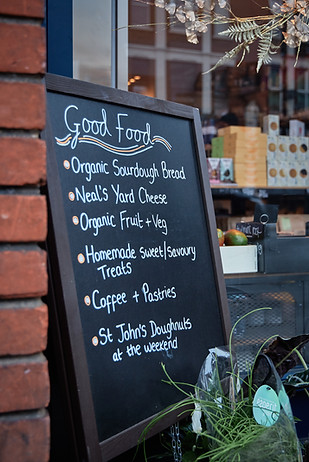 Good Food
Organic Sourdough Bread
Neal's Yard Cheese
Organic Fruit + Veg
Homemade sweet/savoury
Treats
Coffee + Pastries
St John's Doughnuts
at the weekend